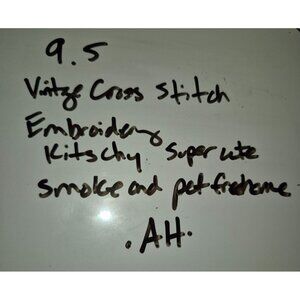 9.5
Vintge Cross Stitch
Embroidery
Kitschy Super cute
Smoke and pet free home
.AH.